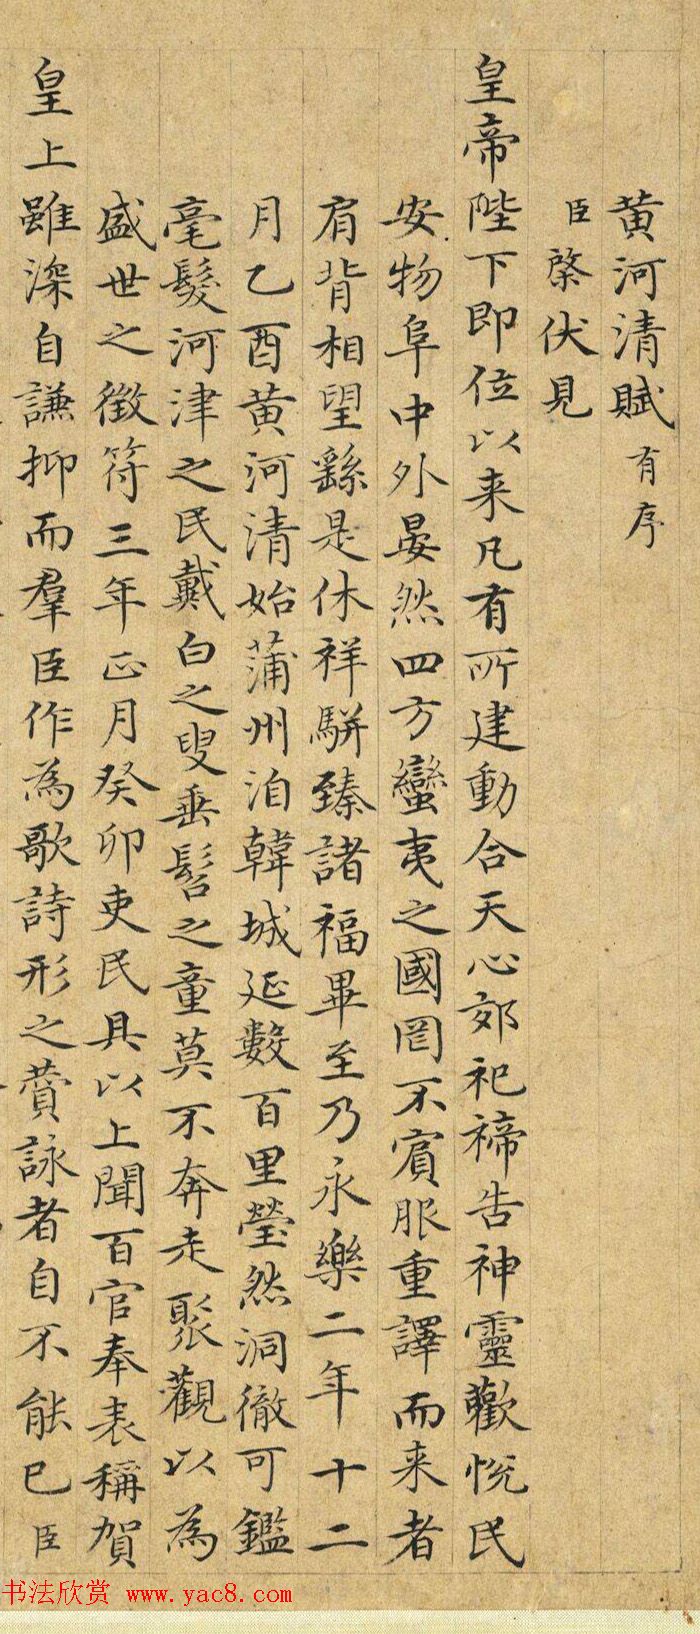 黄河清賦有序
臣棨伏見
皇帝陛下即位以来凡有所建動合天心郊祀禘告神靈歡悦民
安物阜中外晏然四方蠻夷之國罔不賓服重譯而来者
肩背相望繇是休祥駢臻諸福畢至乃永樂二年十二
月乙酉黄河清始蒲州洎韓城延數百里瑩然洞徹可鑑
毫髮河津之民戴白之叟垂髫之童莫不奔走聚觀以為
盛世之徵符三年正月癸卯吏民具以上聞百官奉表稱賀
皇上雖深自謙抑而羣臣作為歌詩形之賛詠者自不能已臣
书法欣赏 www.yac8.com